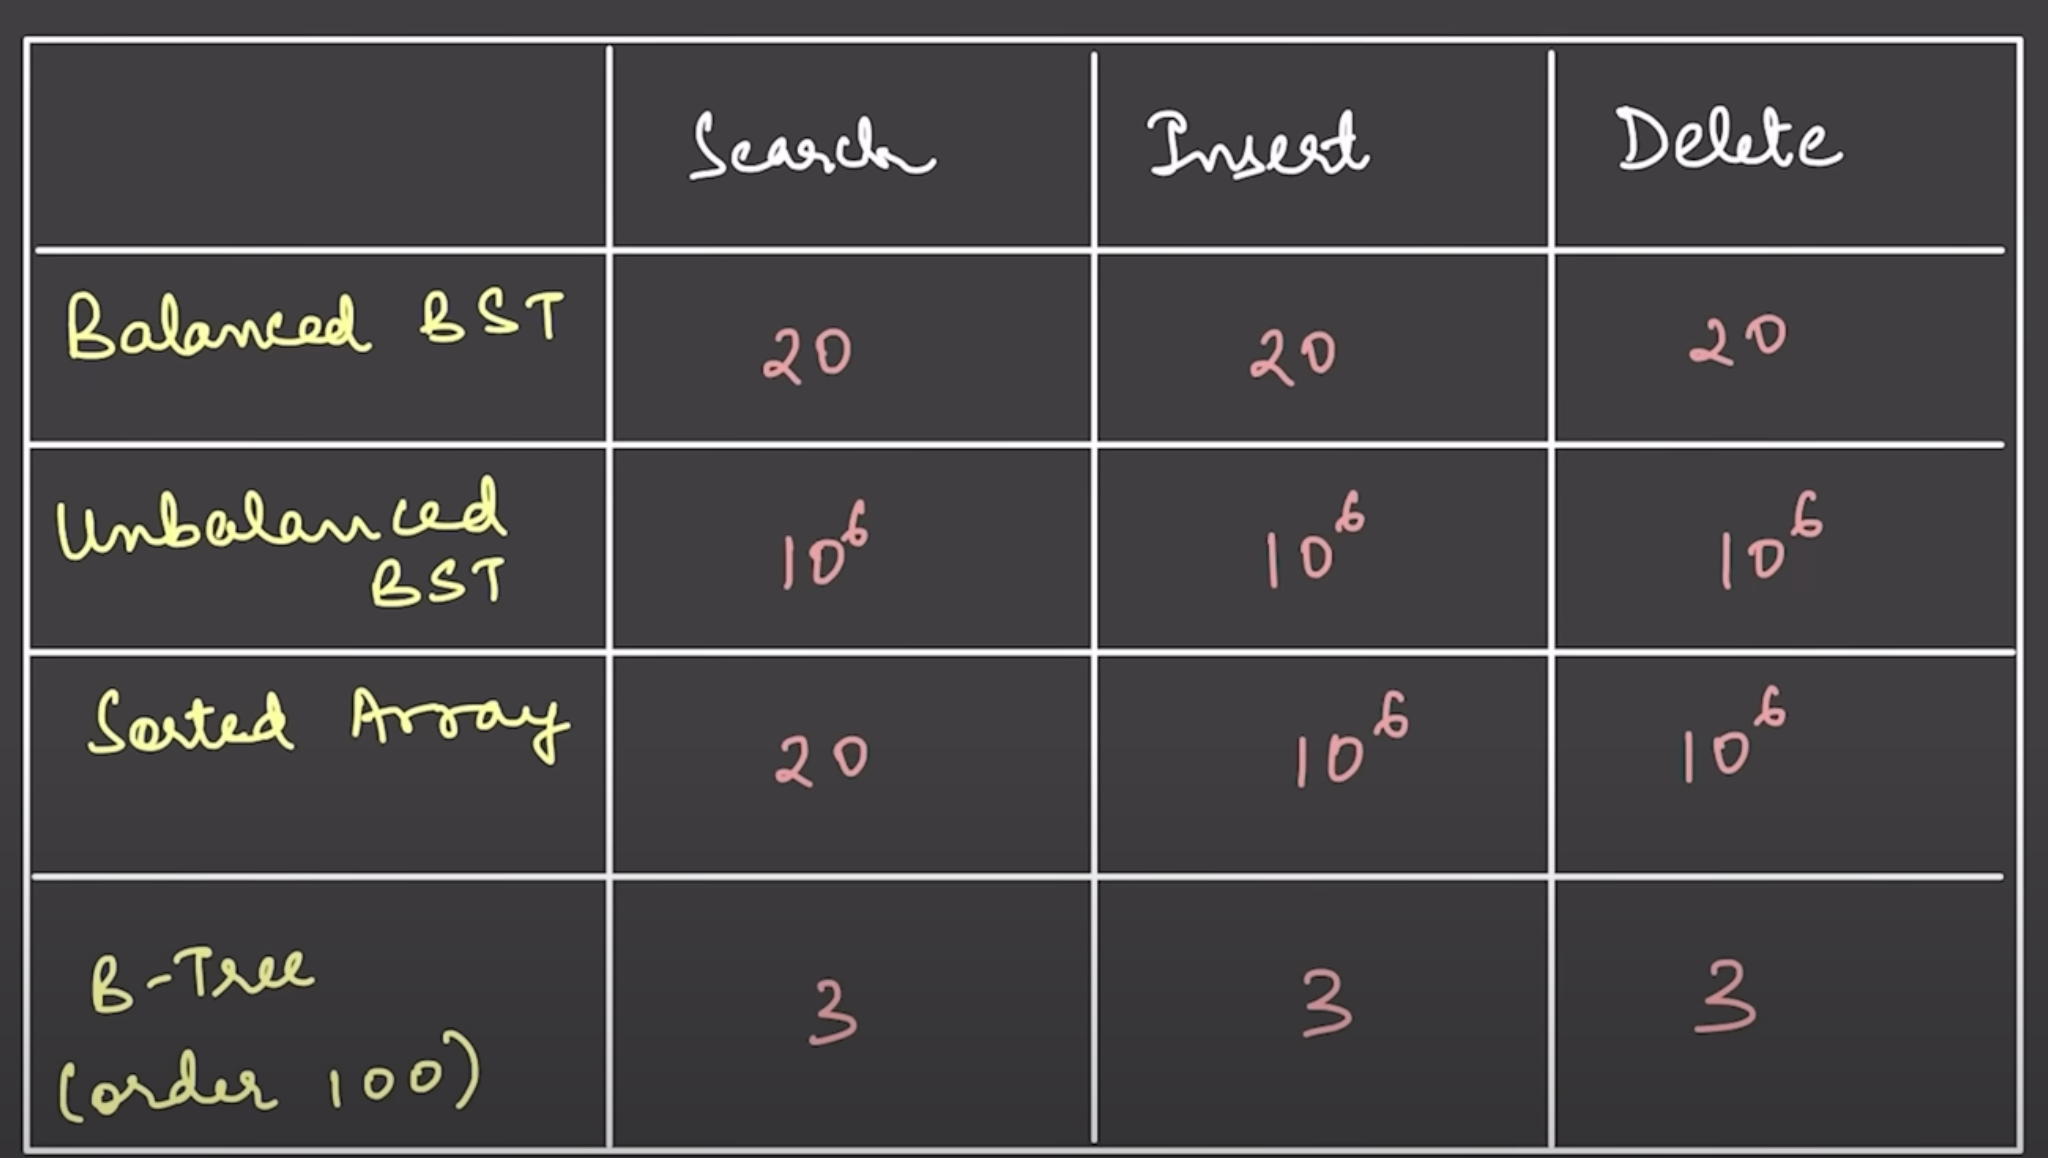 Search Insert Delete
Balanced BST 20 20 20
Unbalanced
BST 10⁶ 10⁶ 10⁶
Sorted Array 20 10⁶ 10⁶
B-Tree 3 3 3
(order 100)